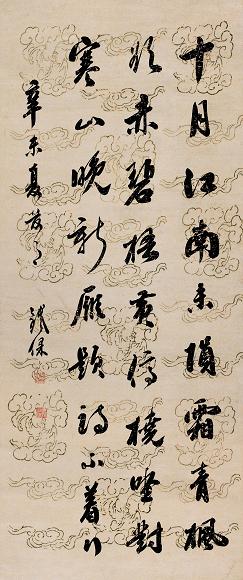 十月江南未隕霜青楓
欲赤碧梧黃停橈坐對
寒山晚新雁題詩小着行
辛未夏
銕保